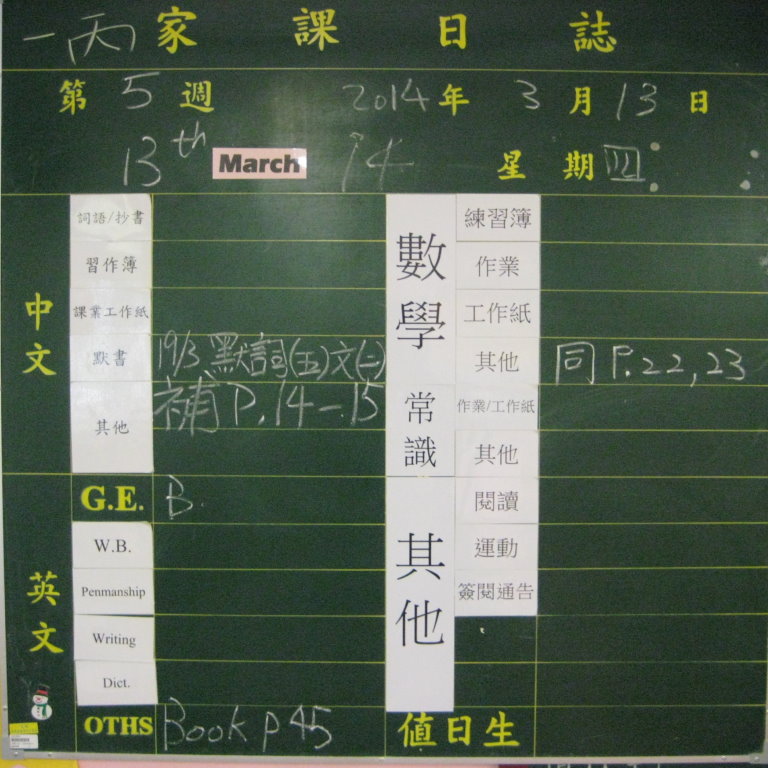 一丙 家課日誌
第 5 週 2014 年 3 月 13 日
13th March 14 星期 四
中文
詞語/抄書
習作簿
課業工作紙
默書 19/3 默詞(五)文(二)
其他 補 P.14-15
英文
G.E. B.
W.B.
Penmanship
Writing
Dict.
OTHS Book p 45
數學
練習簿
作業
工作紙
其他 同 P.22,23
常識
作業/工作紙
其他
其他
閱讀
運動
簽閱通告
值日生